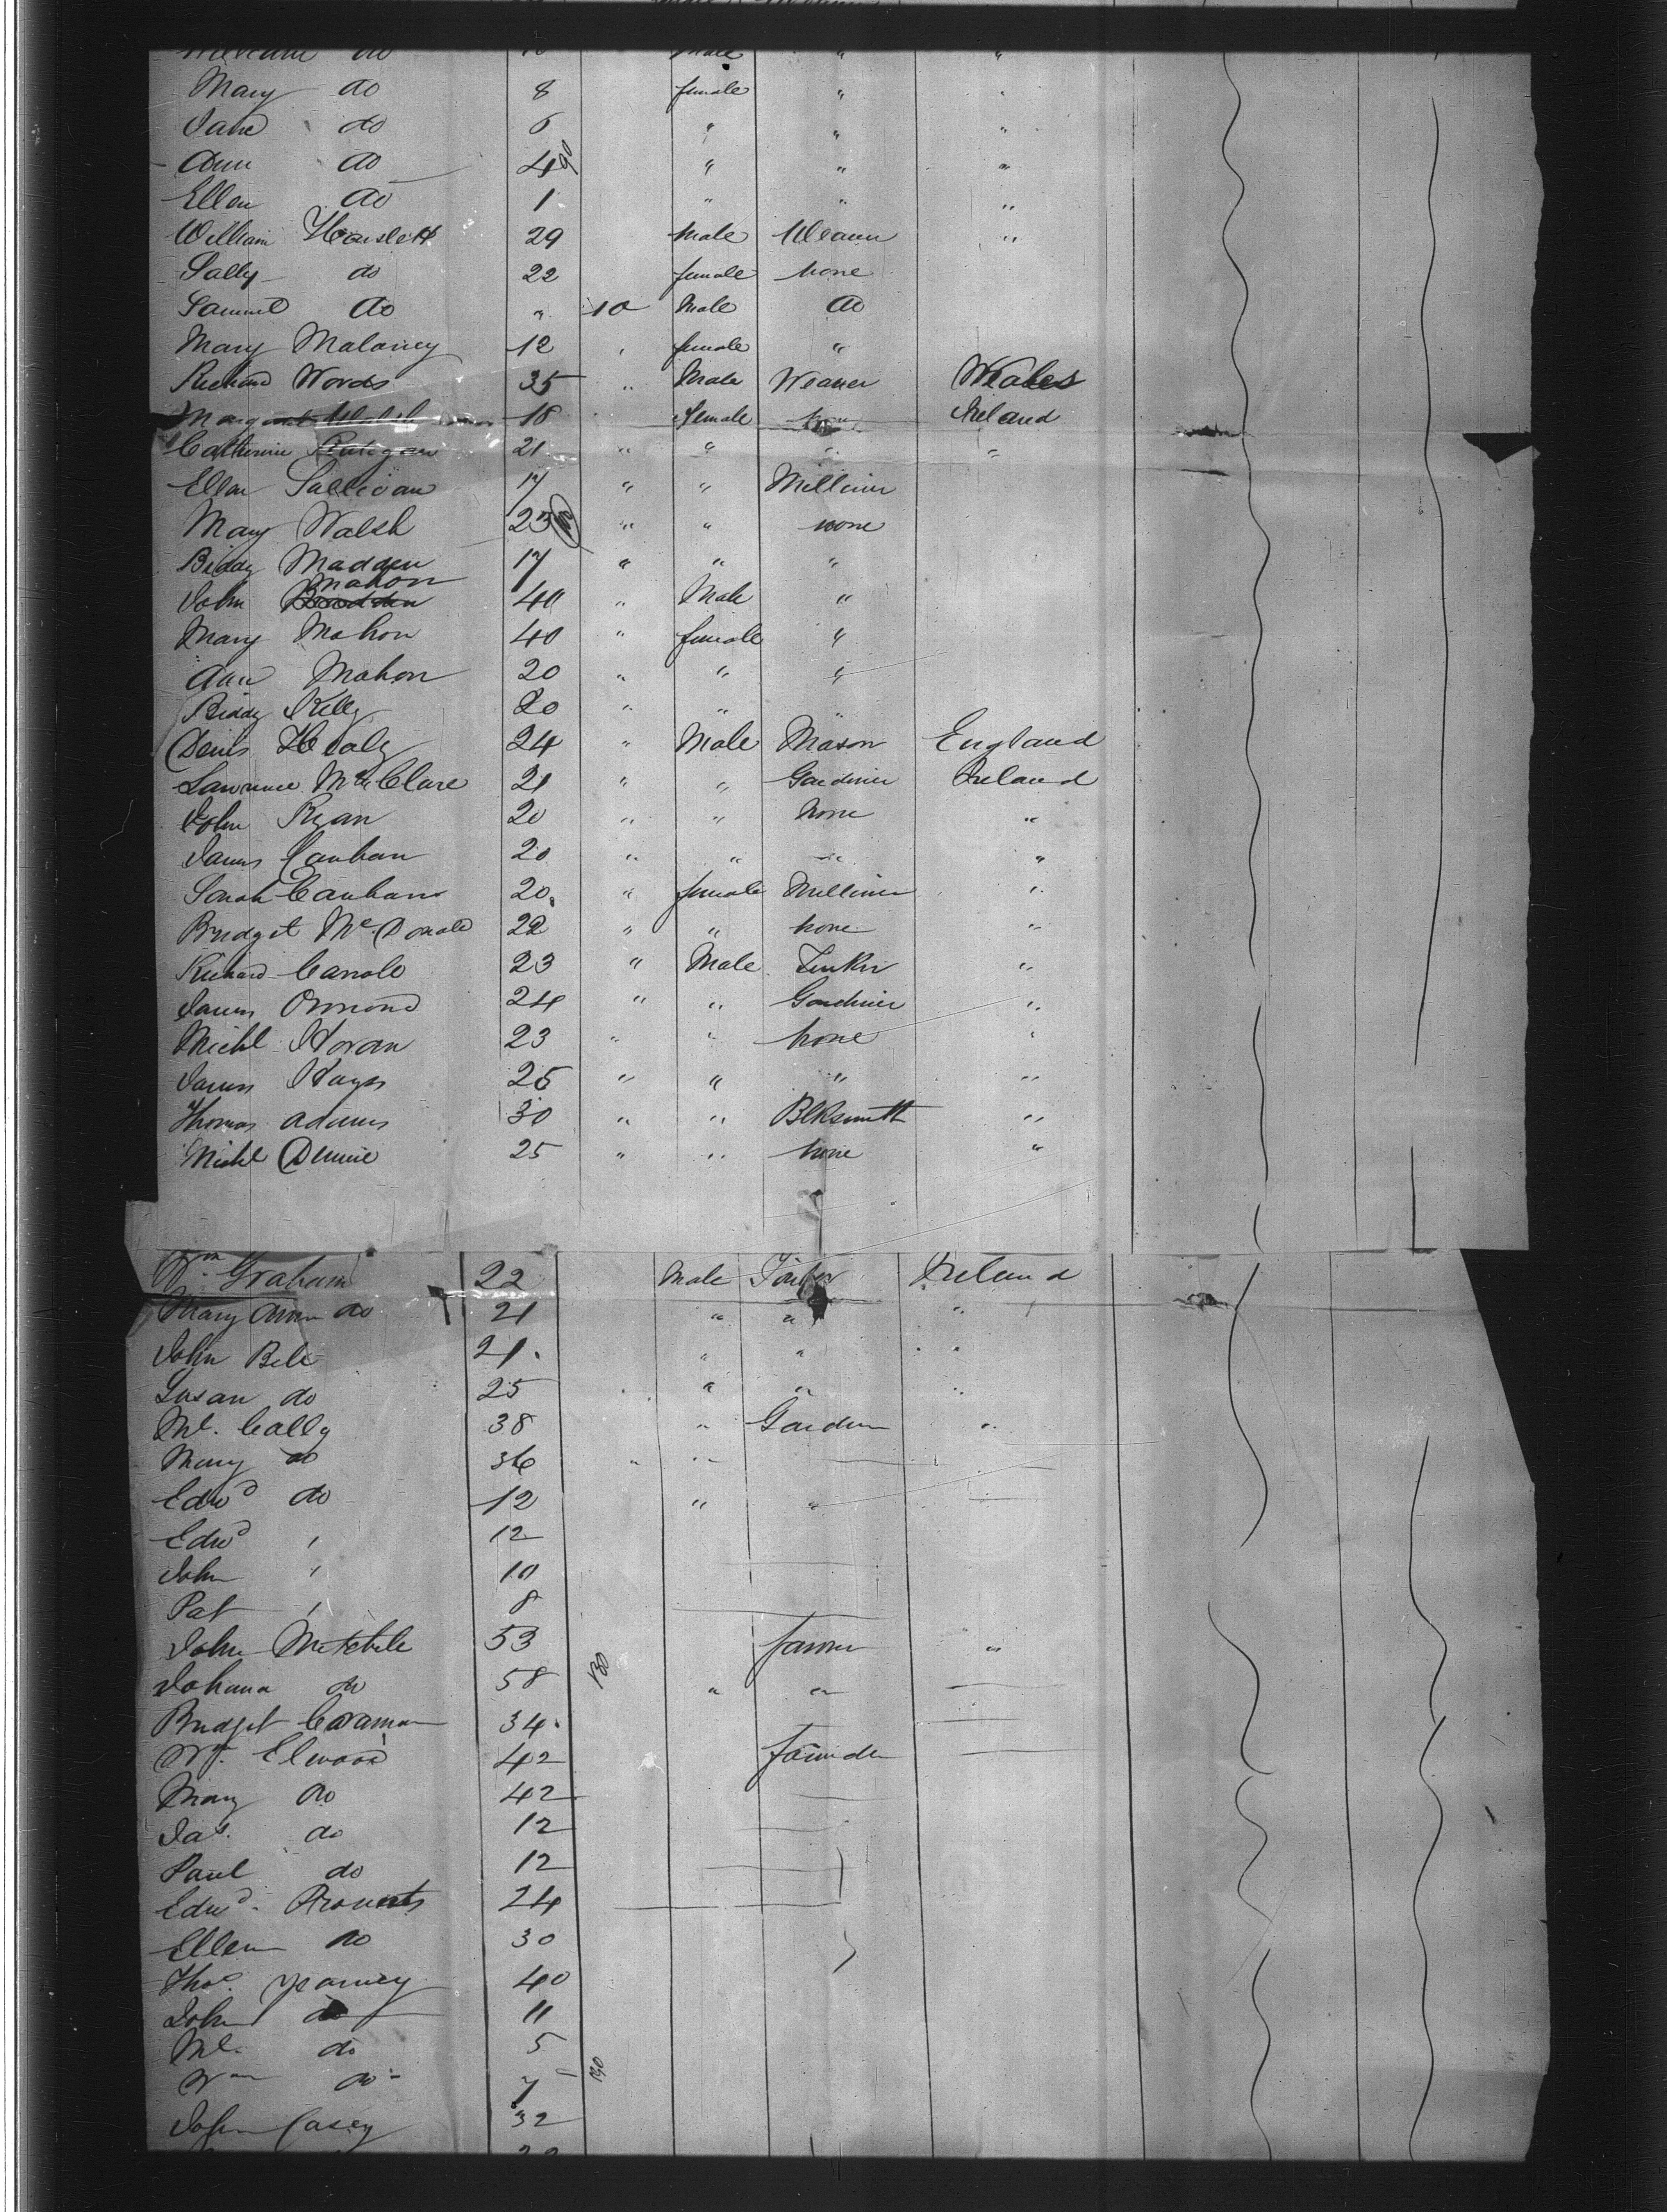 do Male " "
Mary do 8 female " "
Jane do 6 " " "
Ann do 4 90 " " "
Ellen do 1 " " "
William 29 Male Weaver "
Sally do 22 female none
Samuel do " 10 Male do
Mary Malaney 12 " female "
Richard Words 35 " Male Weaver Wales
18 Female Ireland
Catherine 21 " " " "
Ellen Sullivan 17 " " Milliner
Mary Walsh 23 " " none
Biddy Madden 17 " " "
Mahon
John 40 " Male "
Mary Mahon 40 " female "
Ann Mahon 20 " " "
Biddy Kelly 20 " " "
Denis Healy 24 " Male Mason England
Lawrence McClare 21 " " Gardiner Ireland
John Ryan 20 " " None "
James Canhan 20 " " " "
Sarah Canhan 20 " female Milliner "
Bridget McDonald 22 " " none "
Richard 23 " Male "
James Ormond 24 " " Gardiner "
Michl Horan 23 " " none "
James Hays 25 " " " "
Thomas Adams 30 " " Blksmith "
Michl 25 " " none "
Wm. Graham 22 Male Ireland
Mary Ann do 21 " " "
John Bell 21 " " "
Susan do 25 " " "
Ml. Cally 38 " Garden "
Mary do 36 " "
Edwd do 12 " "
Edwd " 12
John " 10
Pat " 8
John Mitchell 53 farmer "
Johana do 58 130 " "
Bridget 34
Wm. Elwood 42
Mary do 42
Jas. do 12
Paul do 12
Edwd. 24
Ellen do 30
Thos. 40
John do 11
Ml. do 5
Wm do 7 140
John Casey 32